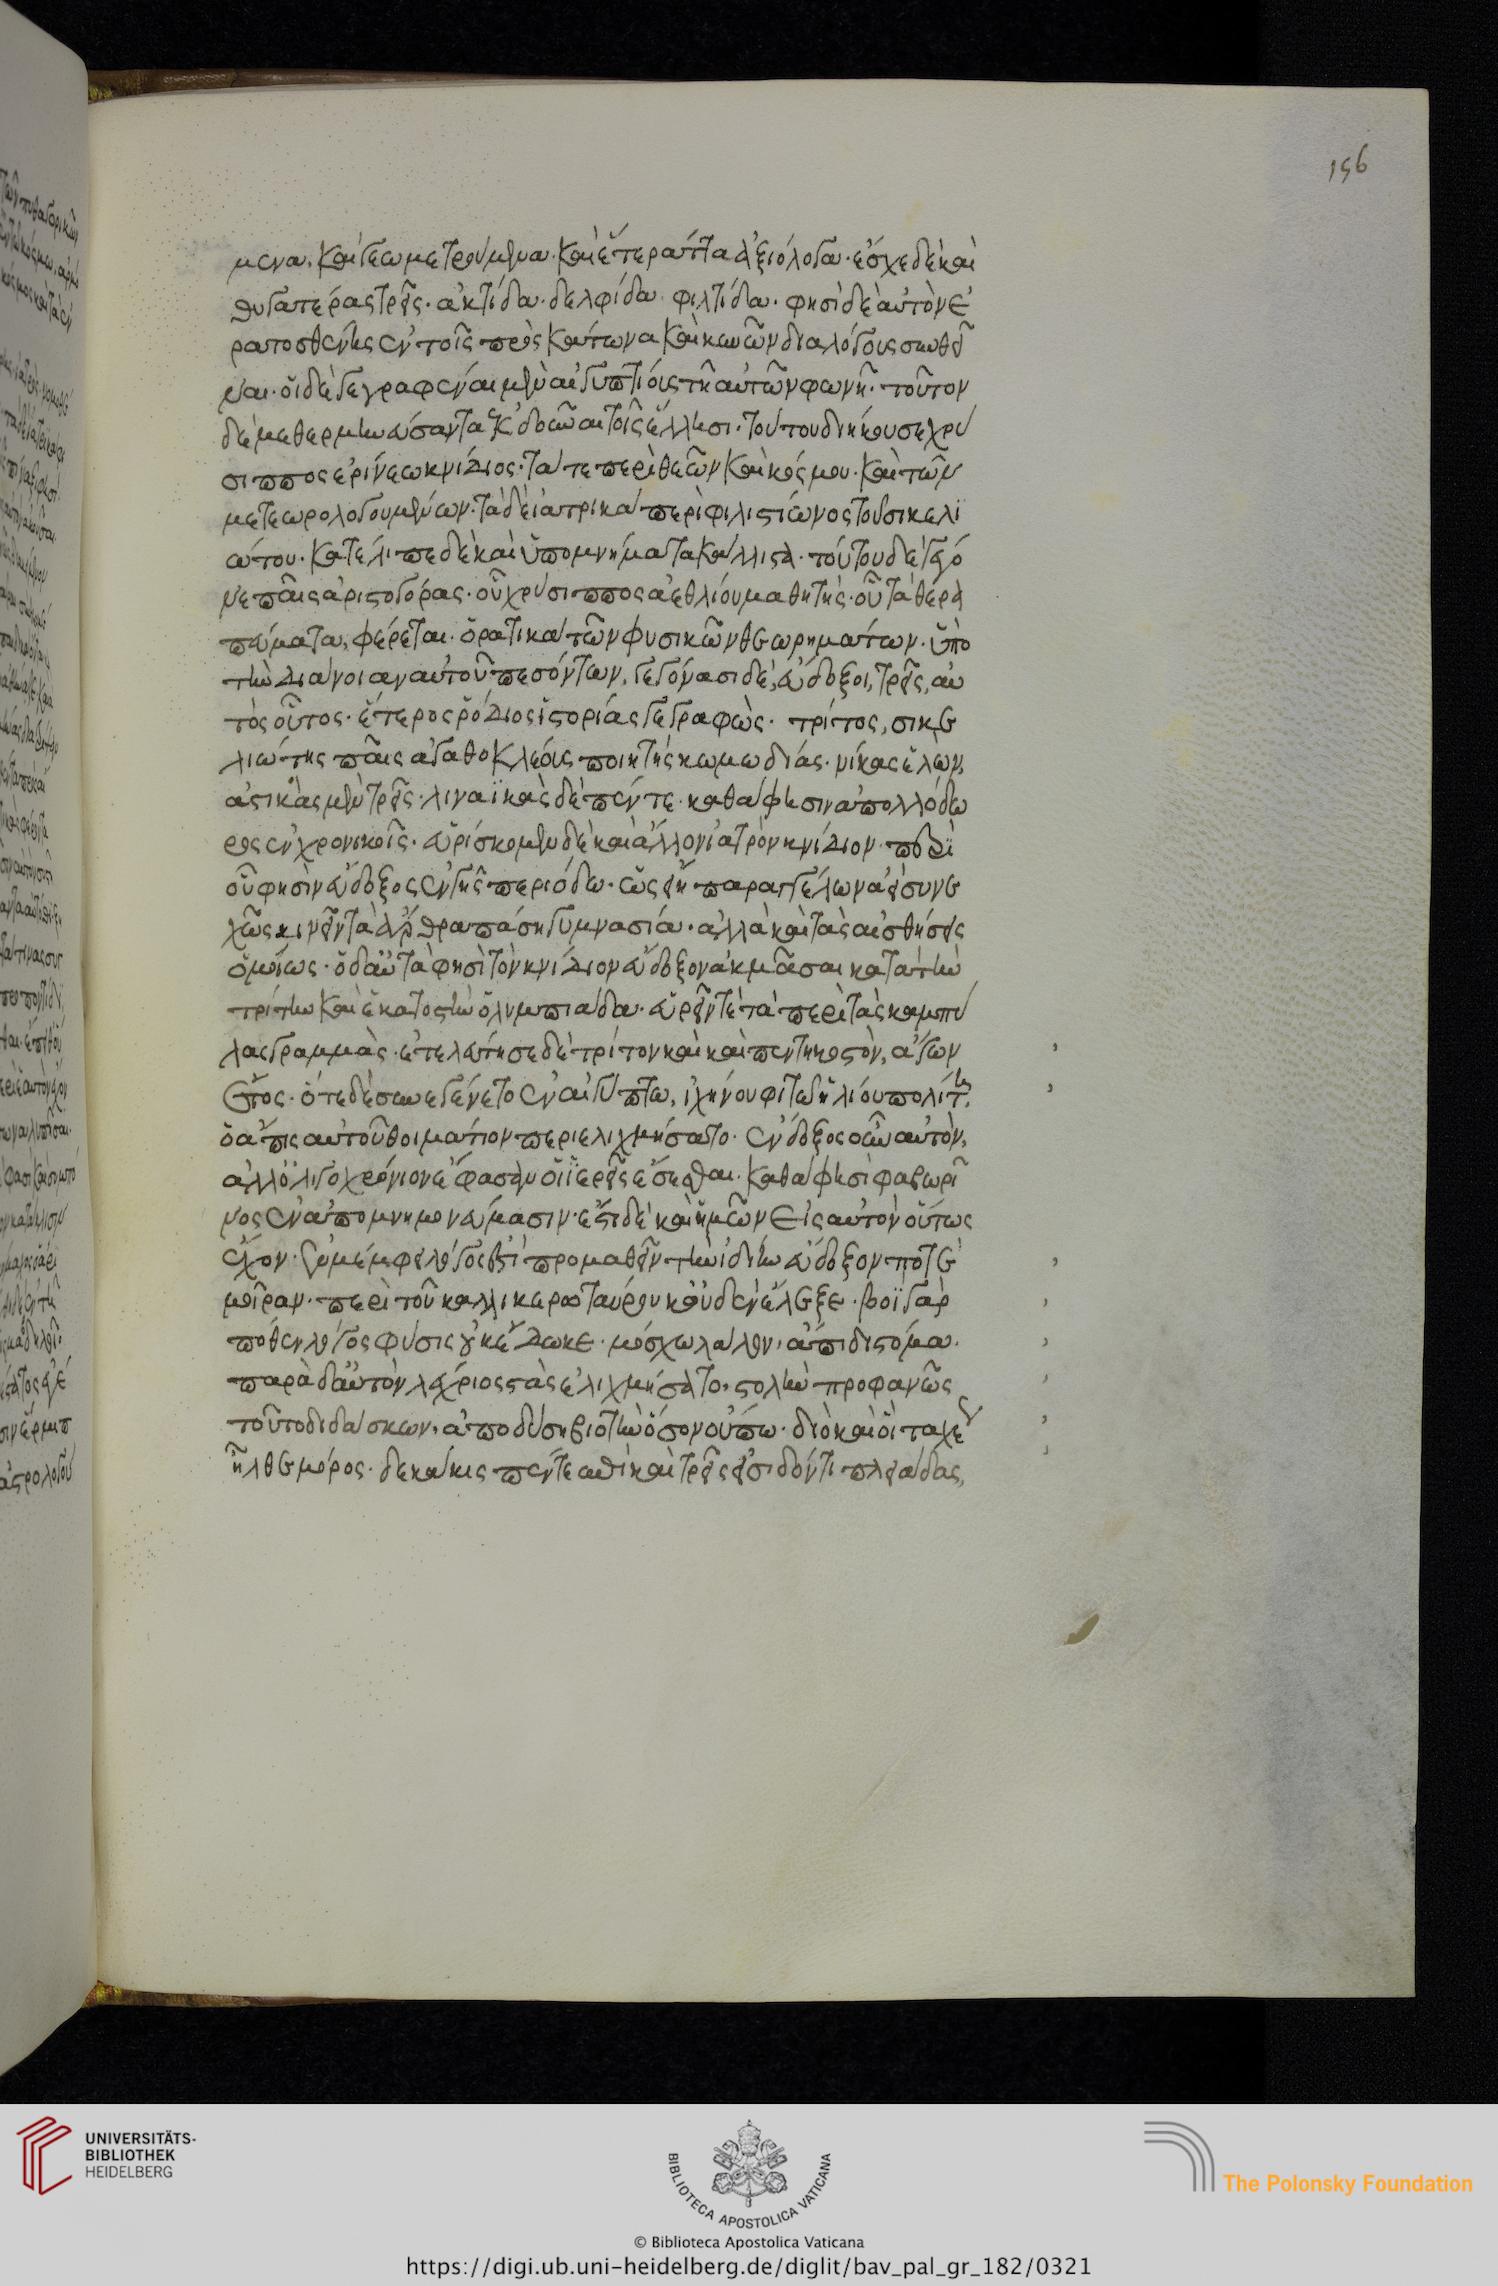 156
μενα. καὶ γεωμετρούμενα. καὶ ἕτερ' ἄττα ἀξιόλογα. ἔσχε δὲ καὶ
θυγατέρας τρεῖς. ἀκτίδα. δελφίδα. φιλτίδα. φησὶ δὲ αὐτὸν ἐ
ρατοσθένης ἐν τοῖς πρὸς βάτωνα καὶ κυνῶν διαλόγους συνθεῖ
ναι. οἱ δὲ γεγραφέναι μὲν αἰγυπτίοις τῆ αὐτῶν φωνῆ. τοῦτον
δὲ μεθερμηνεύσαντα ἐκδοῦναι τοῖς ἕλλησι. τούτου διήκουσε χρύ
σιππος ἐρίνεω κνίδιος. τά τε περὶ θεῶν καὶ κόσμου. καὶ τῶν
μετεωρολογουμένων. τὰ δὲ ἰατρικὰ περὶ φιλιστίωνος τοῦ σικελι
ώτου. κατέλιπε δὲ καὶ ὑπομνήματα κάλλιστα. τούτου δὲ γέγο
νε παῖς ἀρισταγόρας. οὗ χρύσιππος ἀεθλίου μαθητής. οὗ τὰ θερα
πεύματα, φέρεται. ὁρατικὰ τῶν φυσικῶν θεωρημάτων. ὑπὸ
τὴν διάνοιαν αὐτοῦ πεσόντων. γεγόνασι δὲ, εὔδοξοι, τρεῖς, αὐ
τὸς οὗτος. ἕτερος ῥόδιος ἱστορίας γεγραφὼς. τρίτος, σικε
λιώτης παῖς ἀγαθοκλέους ποιητὴς κωμωδίας. νίκας ἑλὼν,
ἀστικὰς μὲν τρεῖς. ληναϊκὰς δὲ πέντε. καθά φησιν ἀπολλόδω
ρος ἐν χρονικοῖς. εὑρίσκομεν δὲ καὶ ἄλλον ἰατρὸν κνίδιον. περὶ
οὗ φησὶν εὔδοξος ἐν γῆς περιόδω. ὡς εἴη παραγγέλων ἀεὶ συνε
χῶς κινεῖν τὰ ἄρθρα πάση γυμνασία. ἀλλὰ καὶ τὰς αἰσθήσεις
ὁμοίως. ὁ δ' αὐτὸς φησὶ τὸν κνίδιον εὔδοξον ἀκμᾶσαι κατὰ τὴν
τρίτην καὶ ἑκατοστὴν ὀλυμπιάδα. εὑρεῖν τε τὰ περὶ τὰς καμπύ
λας γραμμὰς. ἐτελεύτησε δὲ τρίτον καὶ καὶ πεντηκοστὸν, ἄγων
ἔτος. ὅτε δὲ συνεγένετο ἐν αἰγύπτω, ἰχηνούφι τῶ ἡλιουπολίτη.
ὁ ἄπις αὐτοῦ θοιμάτιον περιελιχμήσατο. ἔνδοξος οὖν αὐτὸν,
ἀλλ' ὀλιγοχρόνιον ἔφασαν οἱ ἱερεῖς ἔσεσθαι. καθά φησὶ φαβωρῖ
νος ἐν ἀπομνημονεύμασιν. ἔστι δὲ καὶ ἡμῶν εἰς αὐτὸν οὕτως
ἔχον. ἐν μέμφει λόγος ἐστὶ προμαθεῖν τὴν ἰδίην εὔδοξον ποτὲ
μοῖραν. περὶ τοῦ καλλικέρω ταύρου κοὐδὲν ἔλεξε. βοῒ γὰρ
πόθεν λόγος φύσις οὐκ ἔδωκε. μόσχω λάλον, ἄπιδι στόμα.
παρὰ δ' αὐτὸν λέχριος στὰς ἐλιχμήσατο, στολὴν προφανῶς
τοῦτο διδάσκων, ἀποδύση βιοτὴν ὅσον οὔπω. διὸ καὶ οἱ ταχέ
ἦλθε μόρος. δεκάκις πέντε ἐπὶ καὶ τρεῖς εἰσιδόντι πλειάδας,
UNIVERSITÄTS-
BIBLIOTHEK
HEIDELBERG
BIBLIOTECA APOSTOLICA VATICANA
The Polonsky Foundation
© Biblioteca Apostolica Vaticana
https://digi.ub.uni-heidelberg.de/diglit/bav_pal_gr_182/0321